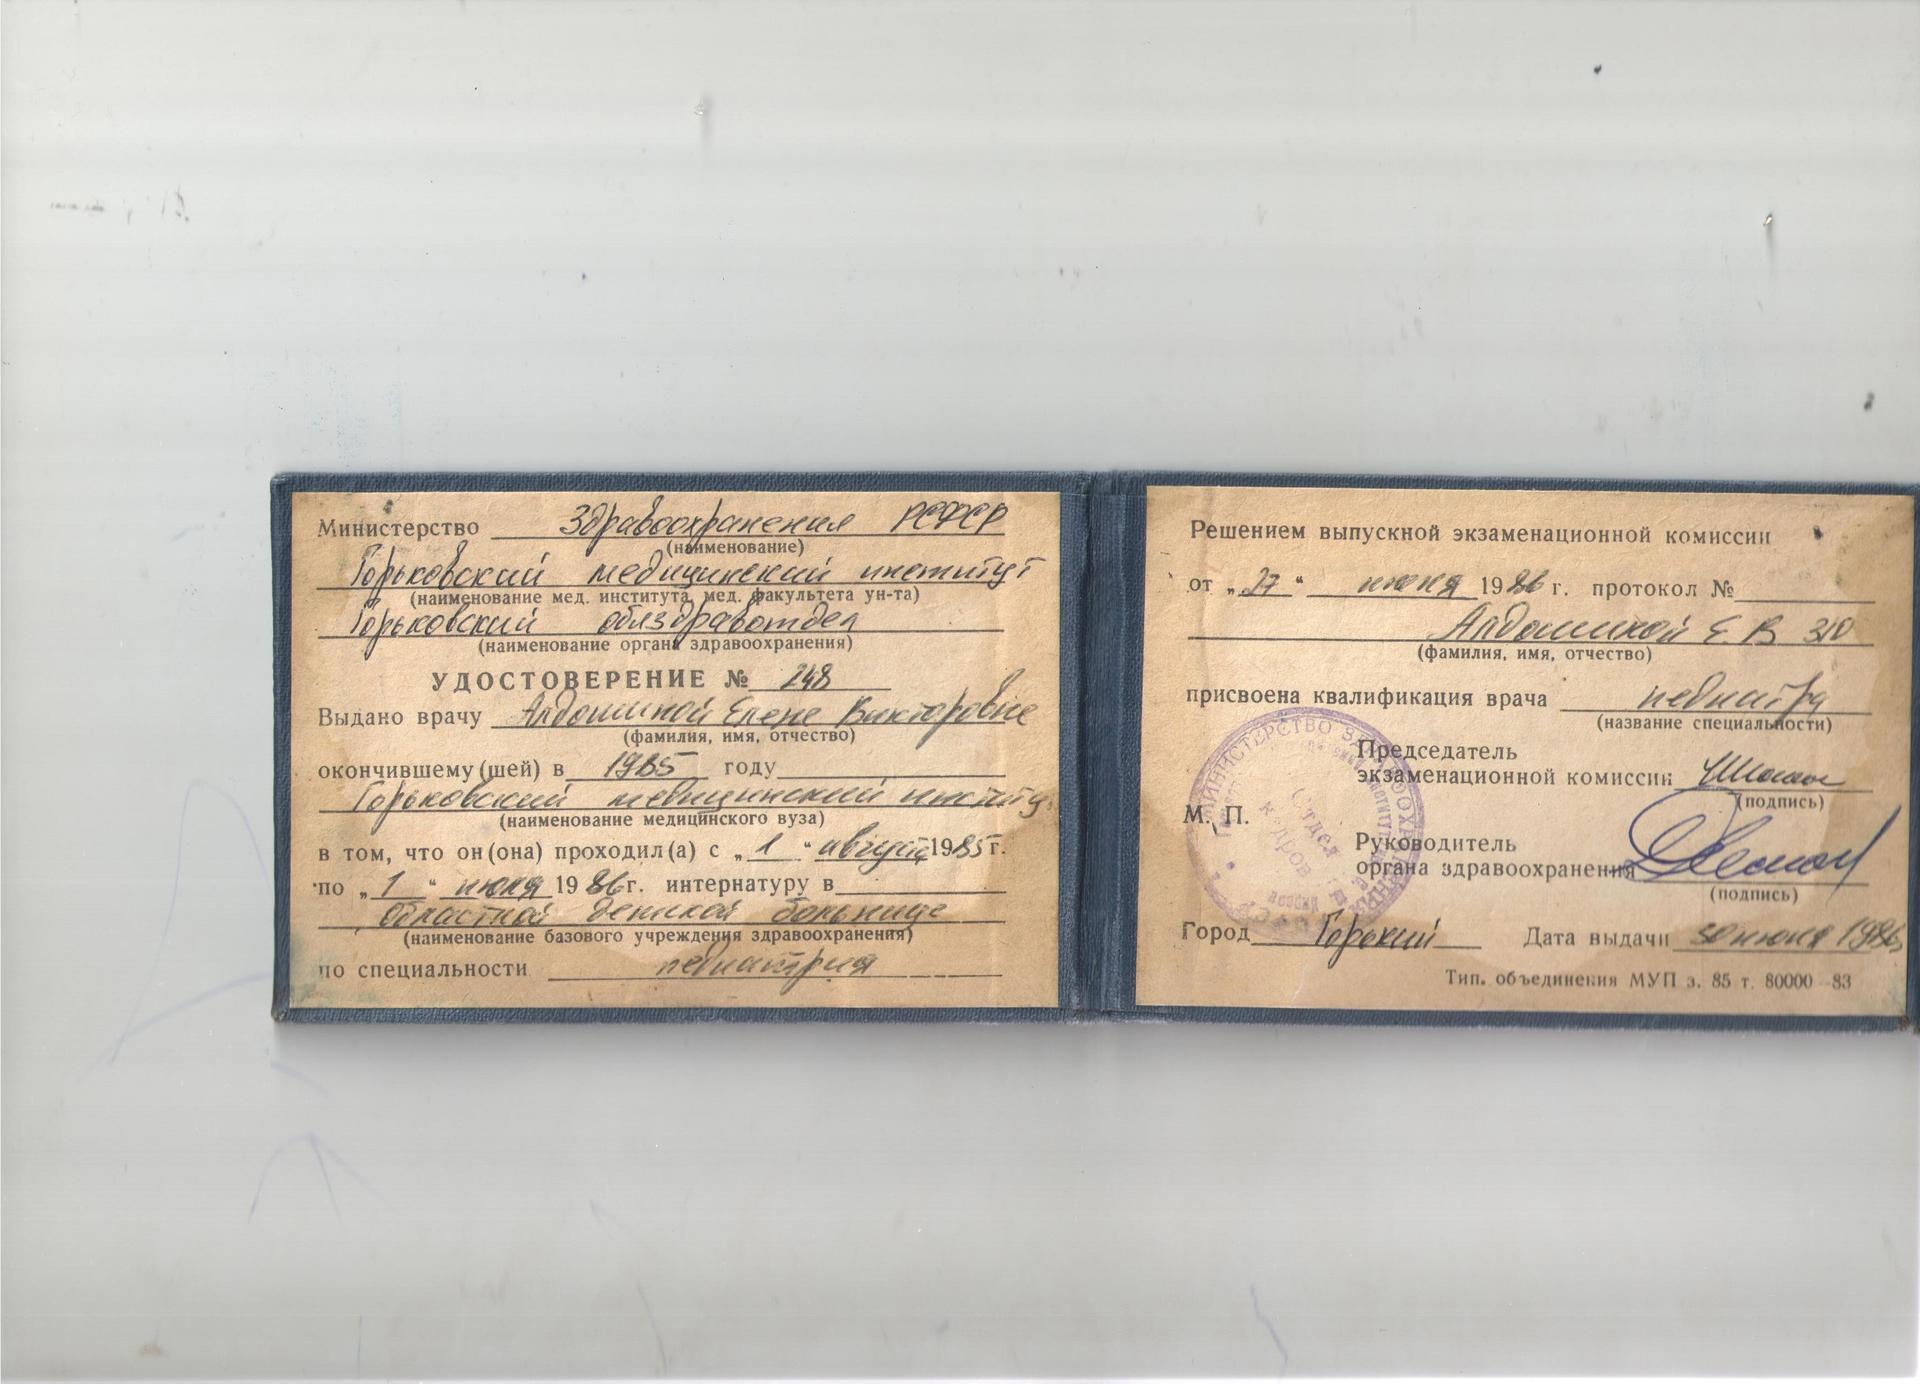 Министерство Здравоохранения РСФСР
(наименование)
Горьковский медицинский институт
(наименование мед. института, мед. факультета ун-та)
Горьковский облздравотдел
(наименование органа здравоохранения)
УДОСТОВЕРЕНИЕ № 248
Выдано врачу Алдошиной Елене Викторовне
(фамилия, имя, отчество)
окончившему (шей) в 1985 году
Горьковский медицинский институ
(наименование медицинского вуза)
в том, что он (она) проходил (а) с „1“ август 1985 г.
по „1“ июля 1986 г. интернатуру в
Областной детской больнице
(наименование базового учреждения здравоохранения)
по специальности педиатрия
Решением выпускной экзаменационной комиссии
от „27“ июня 1986 г. протокол №
Алдошиной Е. В. 310
(фамилия, имя, отчество)
присвоена квалификация врача педиатра
(название специальности)
Председатель
экзаменационной комиссии
(подпись)
М. П.
Руководитель
органа здравоохранения
(подпись)
Город Горький Дата выдачи 30 июня 1986
Тип. объединения МУП з. 85 т. 80000—83
МИНИСТЕРСТВО ЗДРАВООХРАНЕНИЯ
Отдел
кадров